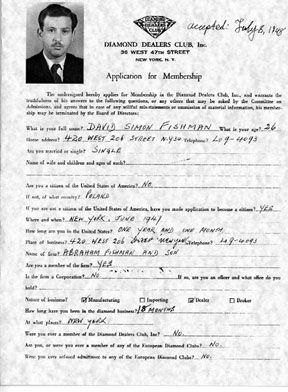 accepted: July 8, 1948
DIAMOND
DEALERS
CLUB
DIAMOND DEALERS CLUB, Inc.
36 WEST 47TH STREET
NEW YORK, N. Y.
Application for Membership
The undersigned hereby applies for Membership in the Diamond Dealers Club, Inc., and warrants the
truthfulness of his answers to the following questions, or any others that may be asked by the Committee on
Admissions, and agrees that in case of any wilful mis-statements or omission of material information, his member-
ship may be terminated by the Board of Directors:
What is your full name? DAVID SIMON FISHMAN What is your age? 26
Home address? 420 WEST 206 STREET N.Y.34 Telephone? LO 9-4093
Are you married or single? SINGLE
Name of wife and children and ages of each?
Are you a citizen of the United States of America? NO.
If not, of what country? POLAND
If you are not a citizen of the United States of America, have you made application to become a citizen? YES
Where and when? NEW YORK. JUNE 1947
How long are you in the United States? ONE YEAR AND ONE MONTH
Place of business? 420 WEST 206 STREET NEW YORK Telephone? LO 9-4093
Name of firm? ABRAHAM FISHMAN AND SON
Are you a member of the firm? YES
Is the firm a Corporation? NO. If so, are you an officer and what office do you
hold?
Nature of business? Manufacturing Importing Dealer Broker
How long have you been in the diamond business? 18 MONTHS
At what places? NEW YORK.
Were you ever a member of the Diamond Dealers Club, Inc? NO.
Are you, or were you ever a member of any of the European Diamond Clubs? NO.
Were you ever refused admittance to any of the European Diamond Clubs? NO.